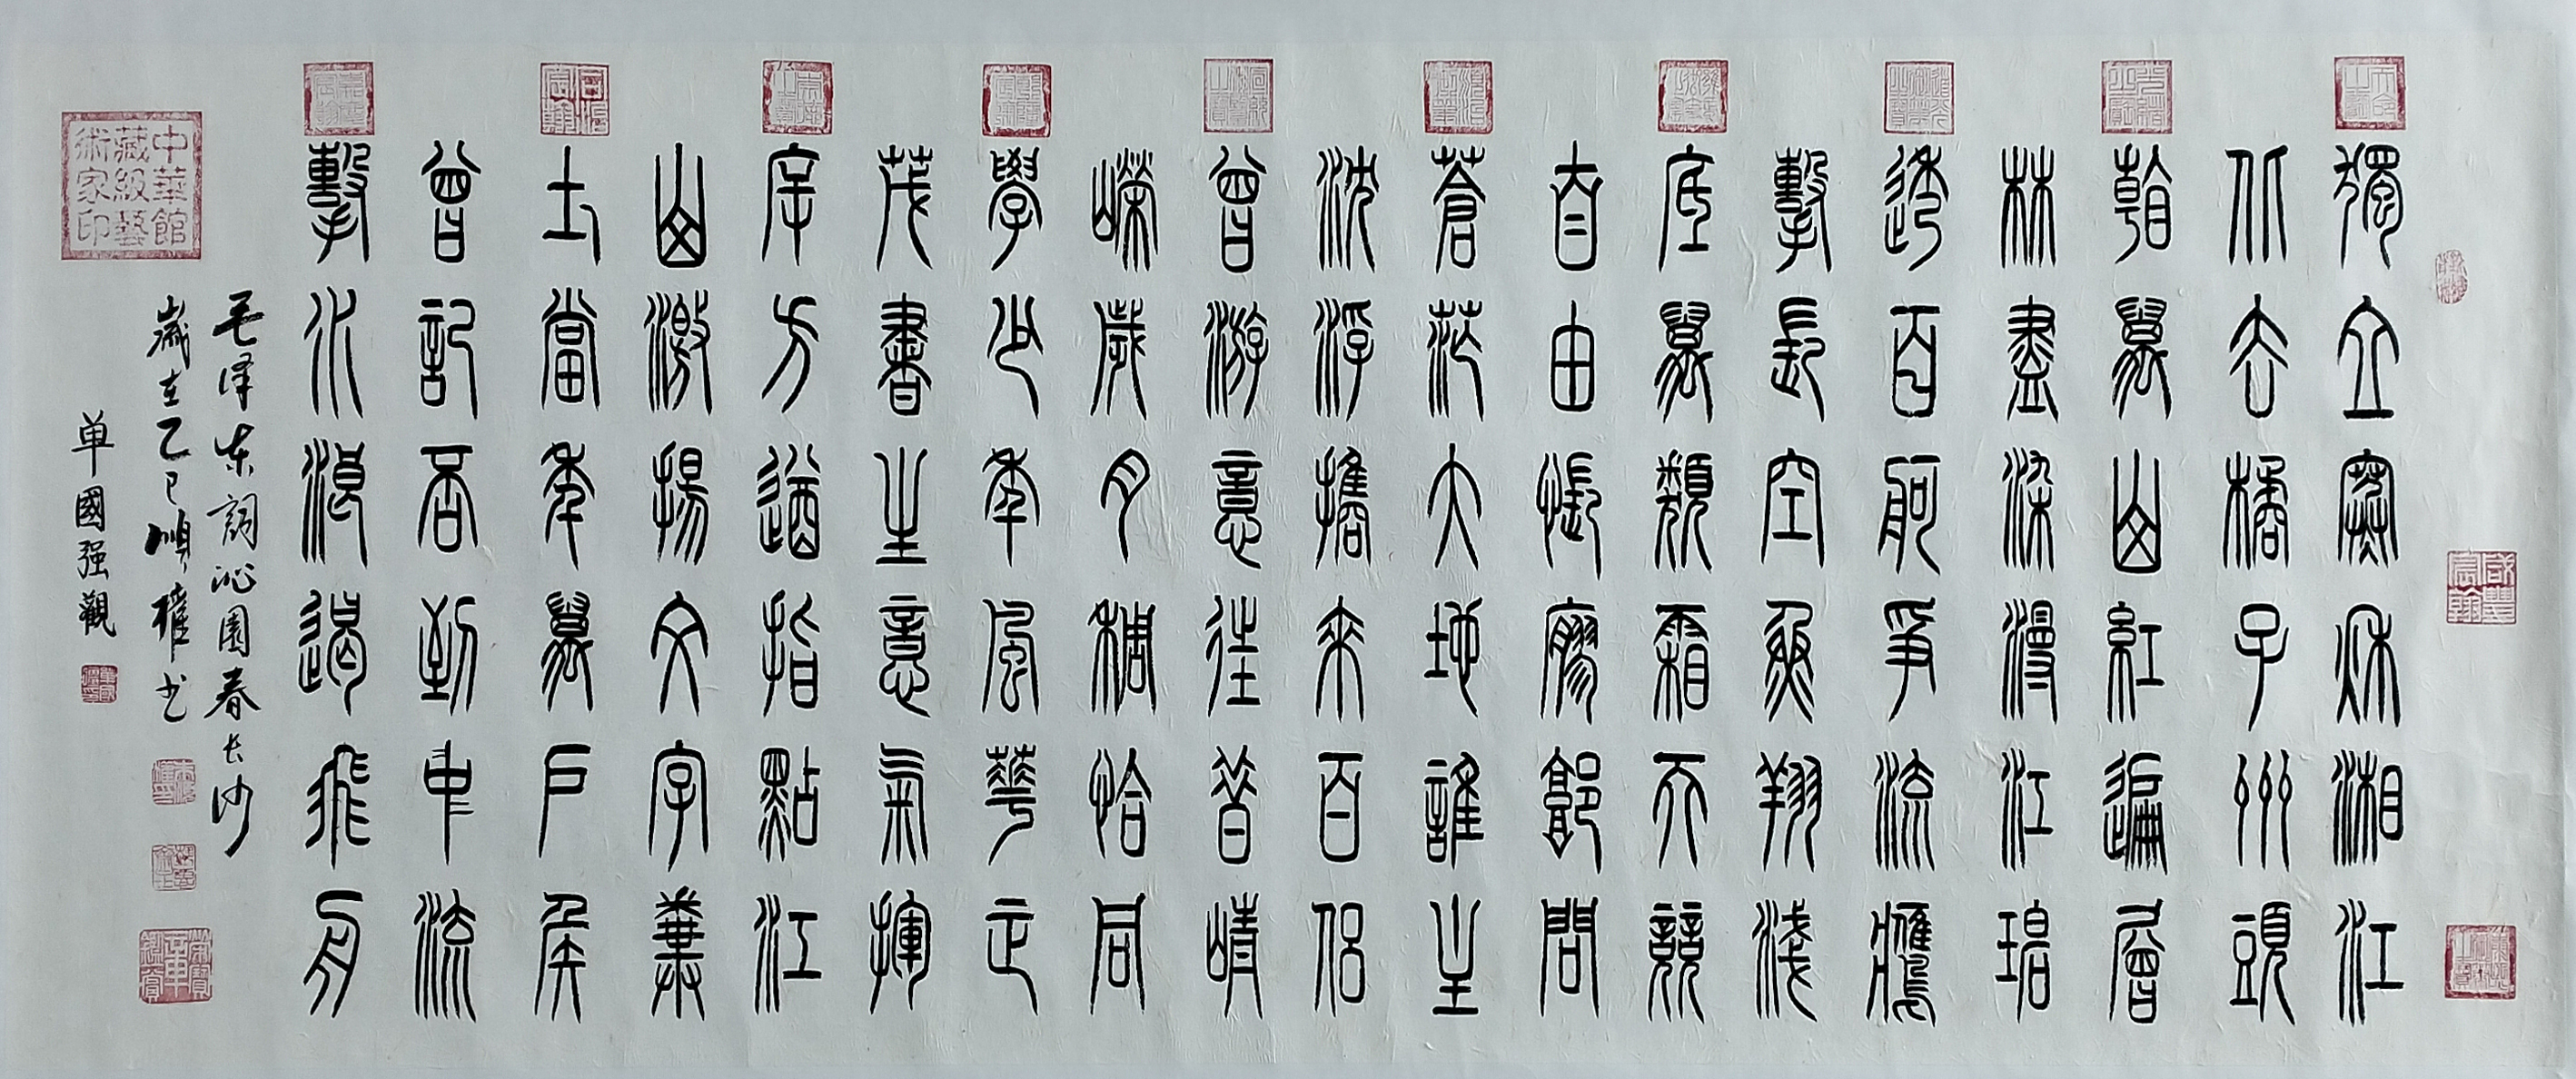 獨立寒秋湘江
北去橘子州頭
看萬山紅遍層
林盡染漫江碧
透百舸爭流鷹
擊長空魚翔淺
底萬類霜天競
自由悵寥廓問
蒼茫大地誰主
沈浮攜來百侶
曾游意往昔崝
嶸歲月稠恰同
學少年風華正
茂書生意氣揮
斥方遒指點江
山激揚文字糞
土當年萬戶侯
曾記否到中流
擊水浪遏飛舟
毛泽东詞沁園春长沙
歲在乙巳順權书
单國强觀
中華館
藏級藝
術家印